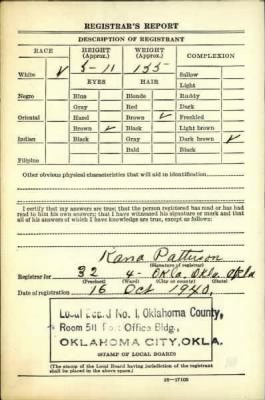 REGISTRAR'S REPORT
DESCRIPTION OF REGISTRANT
RACE HEIGHT (Approx.) WEIGHT (Approx.) COMPLEXION
White ✓ 5-11 155 Sallow
EYES HAIR Light
Negro Blue Blonde Ruddy
Gray Red Dark
Oriental Hazel Brown ✓ Freckled
Brown ✓ Black Light brown
Indian Black Gray Dark brown ✓
Bald Black
Filipino
Other obvious physical characteristics that will aid in identification
I certify that my answers are true; that the person registered has read or has had
read to him his own answers; that I have witnessed his signature or mark and that
all of his answers of which I have knowledge are true, except as follows:
Kana Patterson
(Signature of registrar)
Registrar for 32 4- Okla. Okla. Okla
(Precinct) (Ward) (City or county) (State)
Date of registration 16 Oct 1940.
Local Board No. 1, Oklahoma County,
Room 511 Post Office Bldg.,
OKLAHOMA CITY, OKLA.
(STAMP OF LOCAL BOARD)
(The stamp of the Local Board having jurisdiction of the registrant
shall be placed in the above space.)